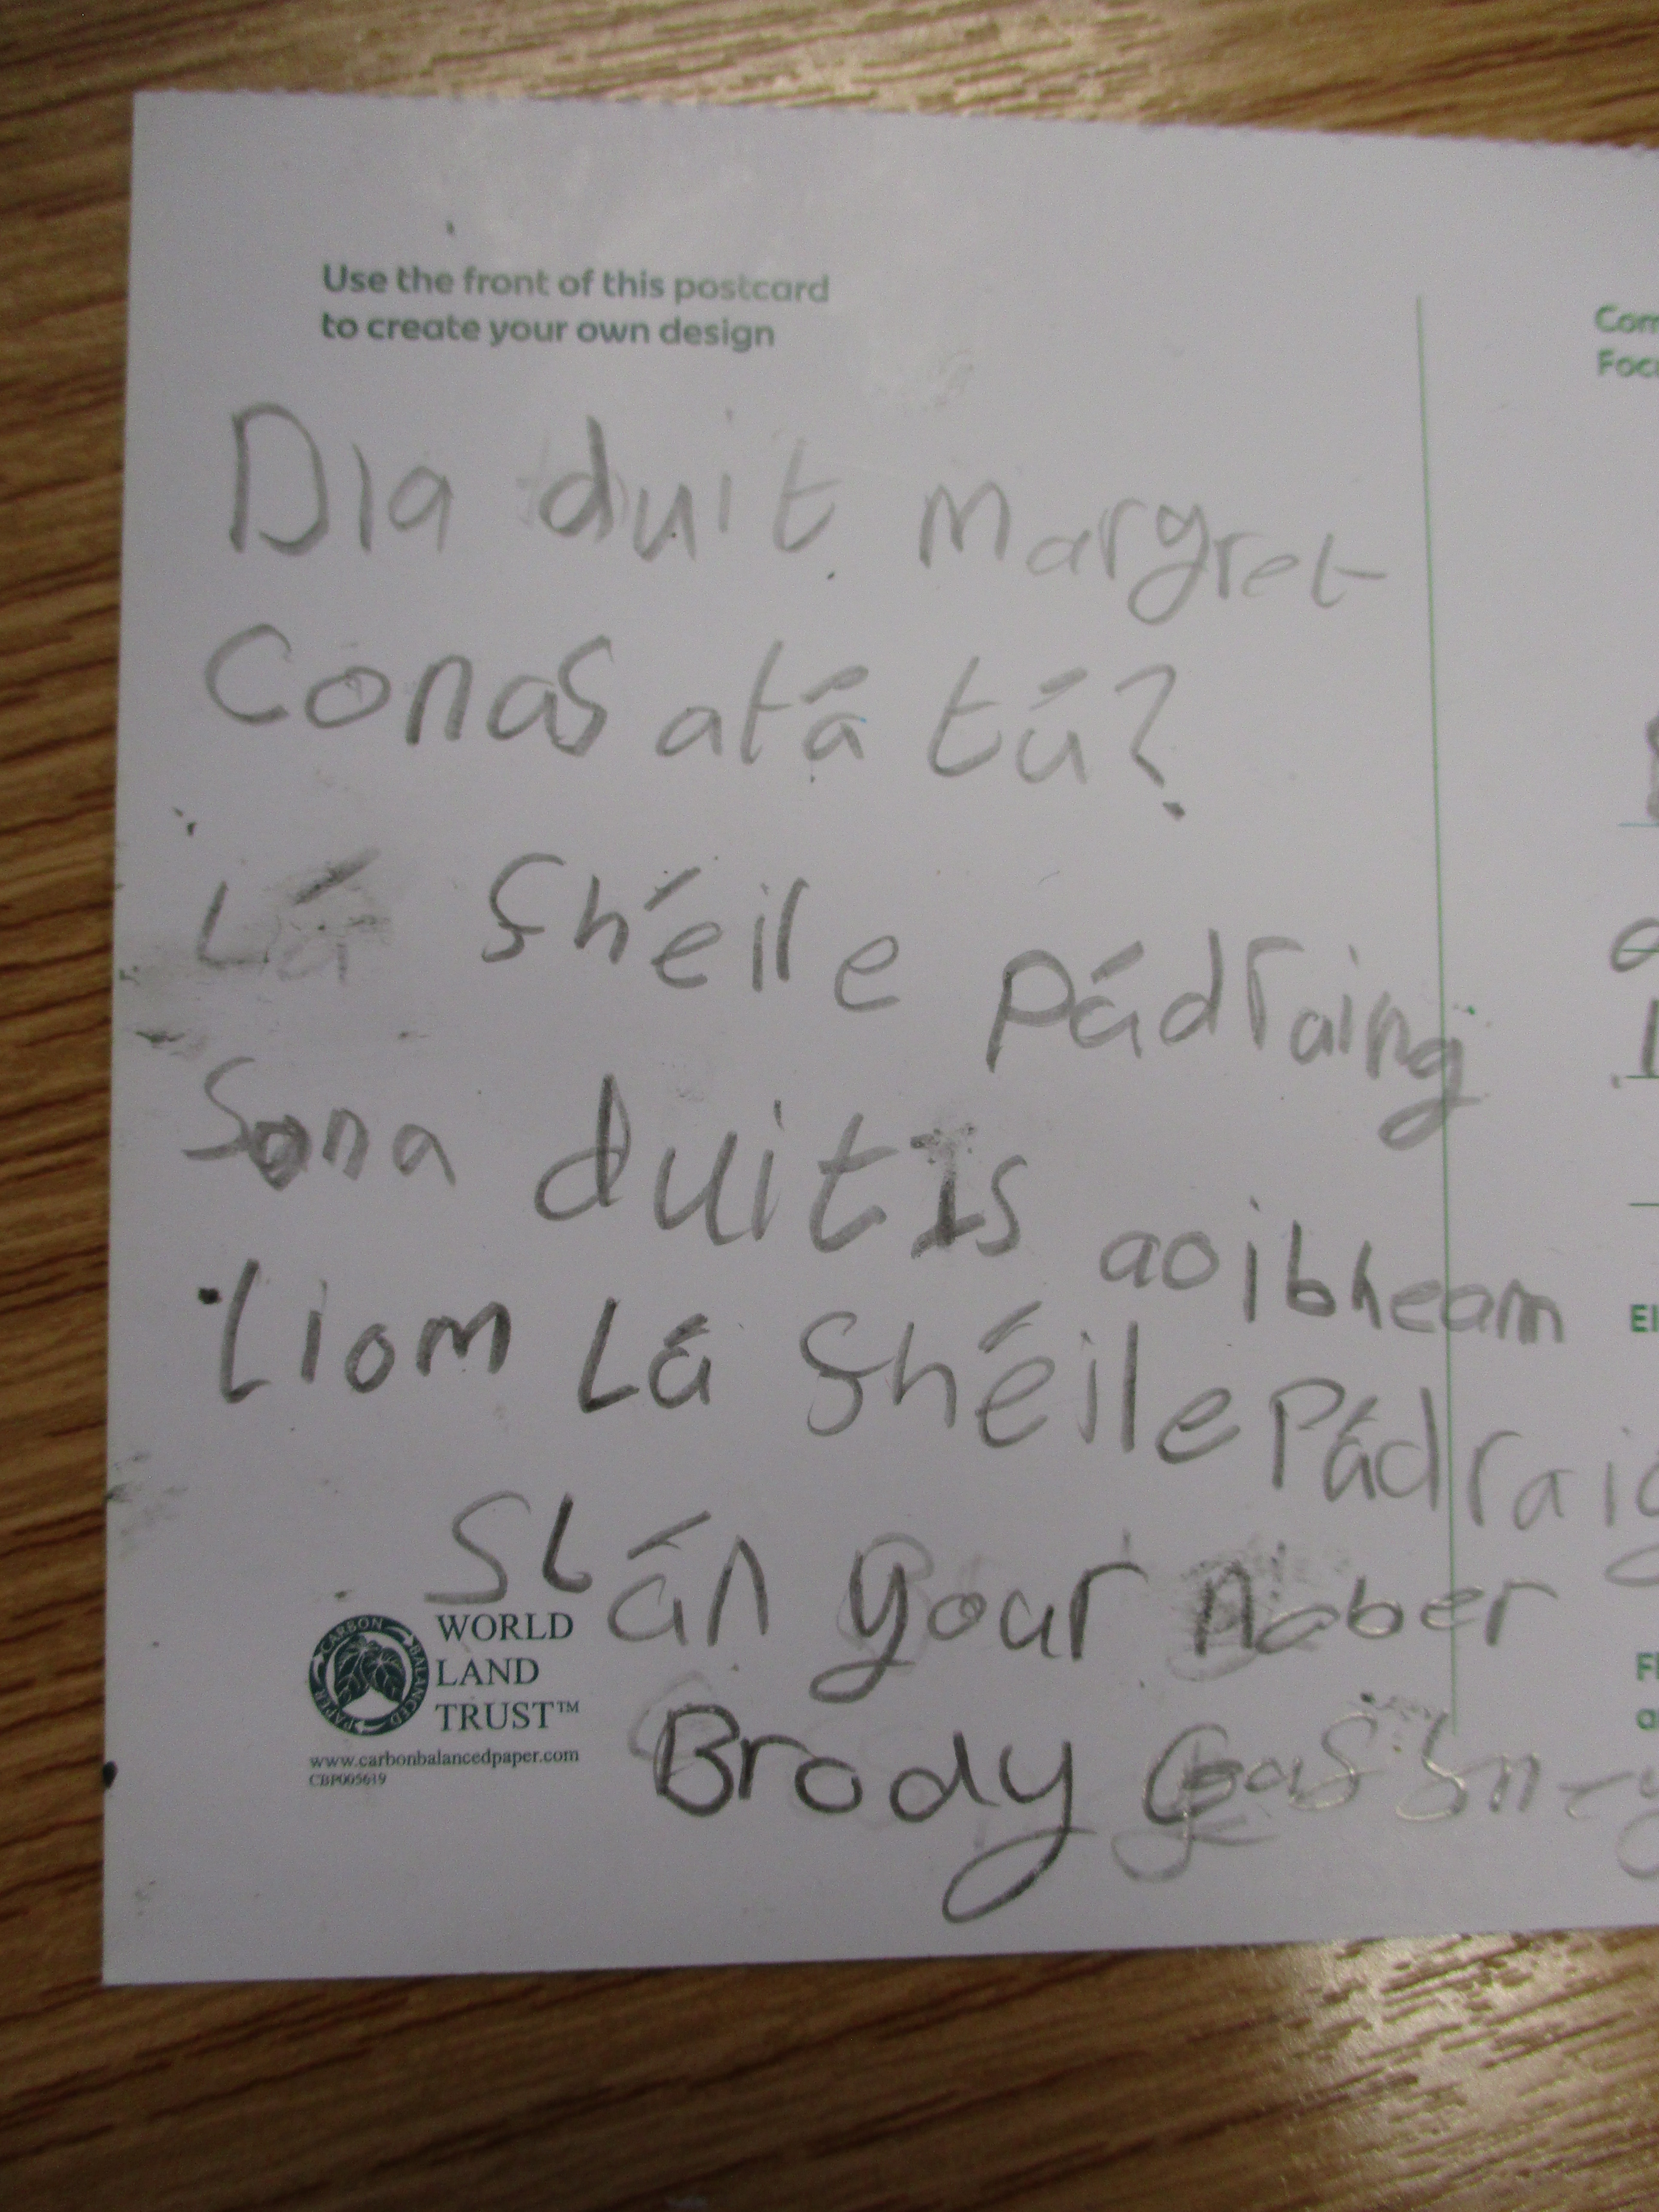 Use the front of this postcard
to create your own design
Dia duit Margret
Conas atá tú?
Lá Shéile Pádraing
Sona duit Is aoibheam
liom Lá Shéile Pádraig
Slán your naber
Brody
CARBON BALANCED PAPER
WORLD
LAND
TRUST™
www.carbonbalancedpaper.com
CBP005619
Com
Foc
El
Fl
a